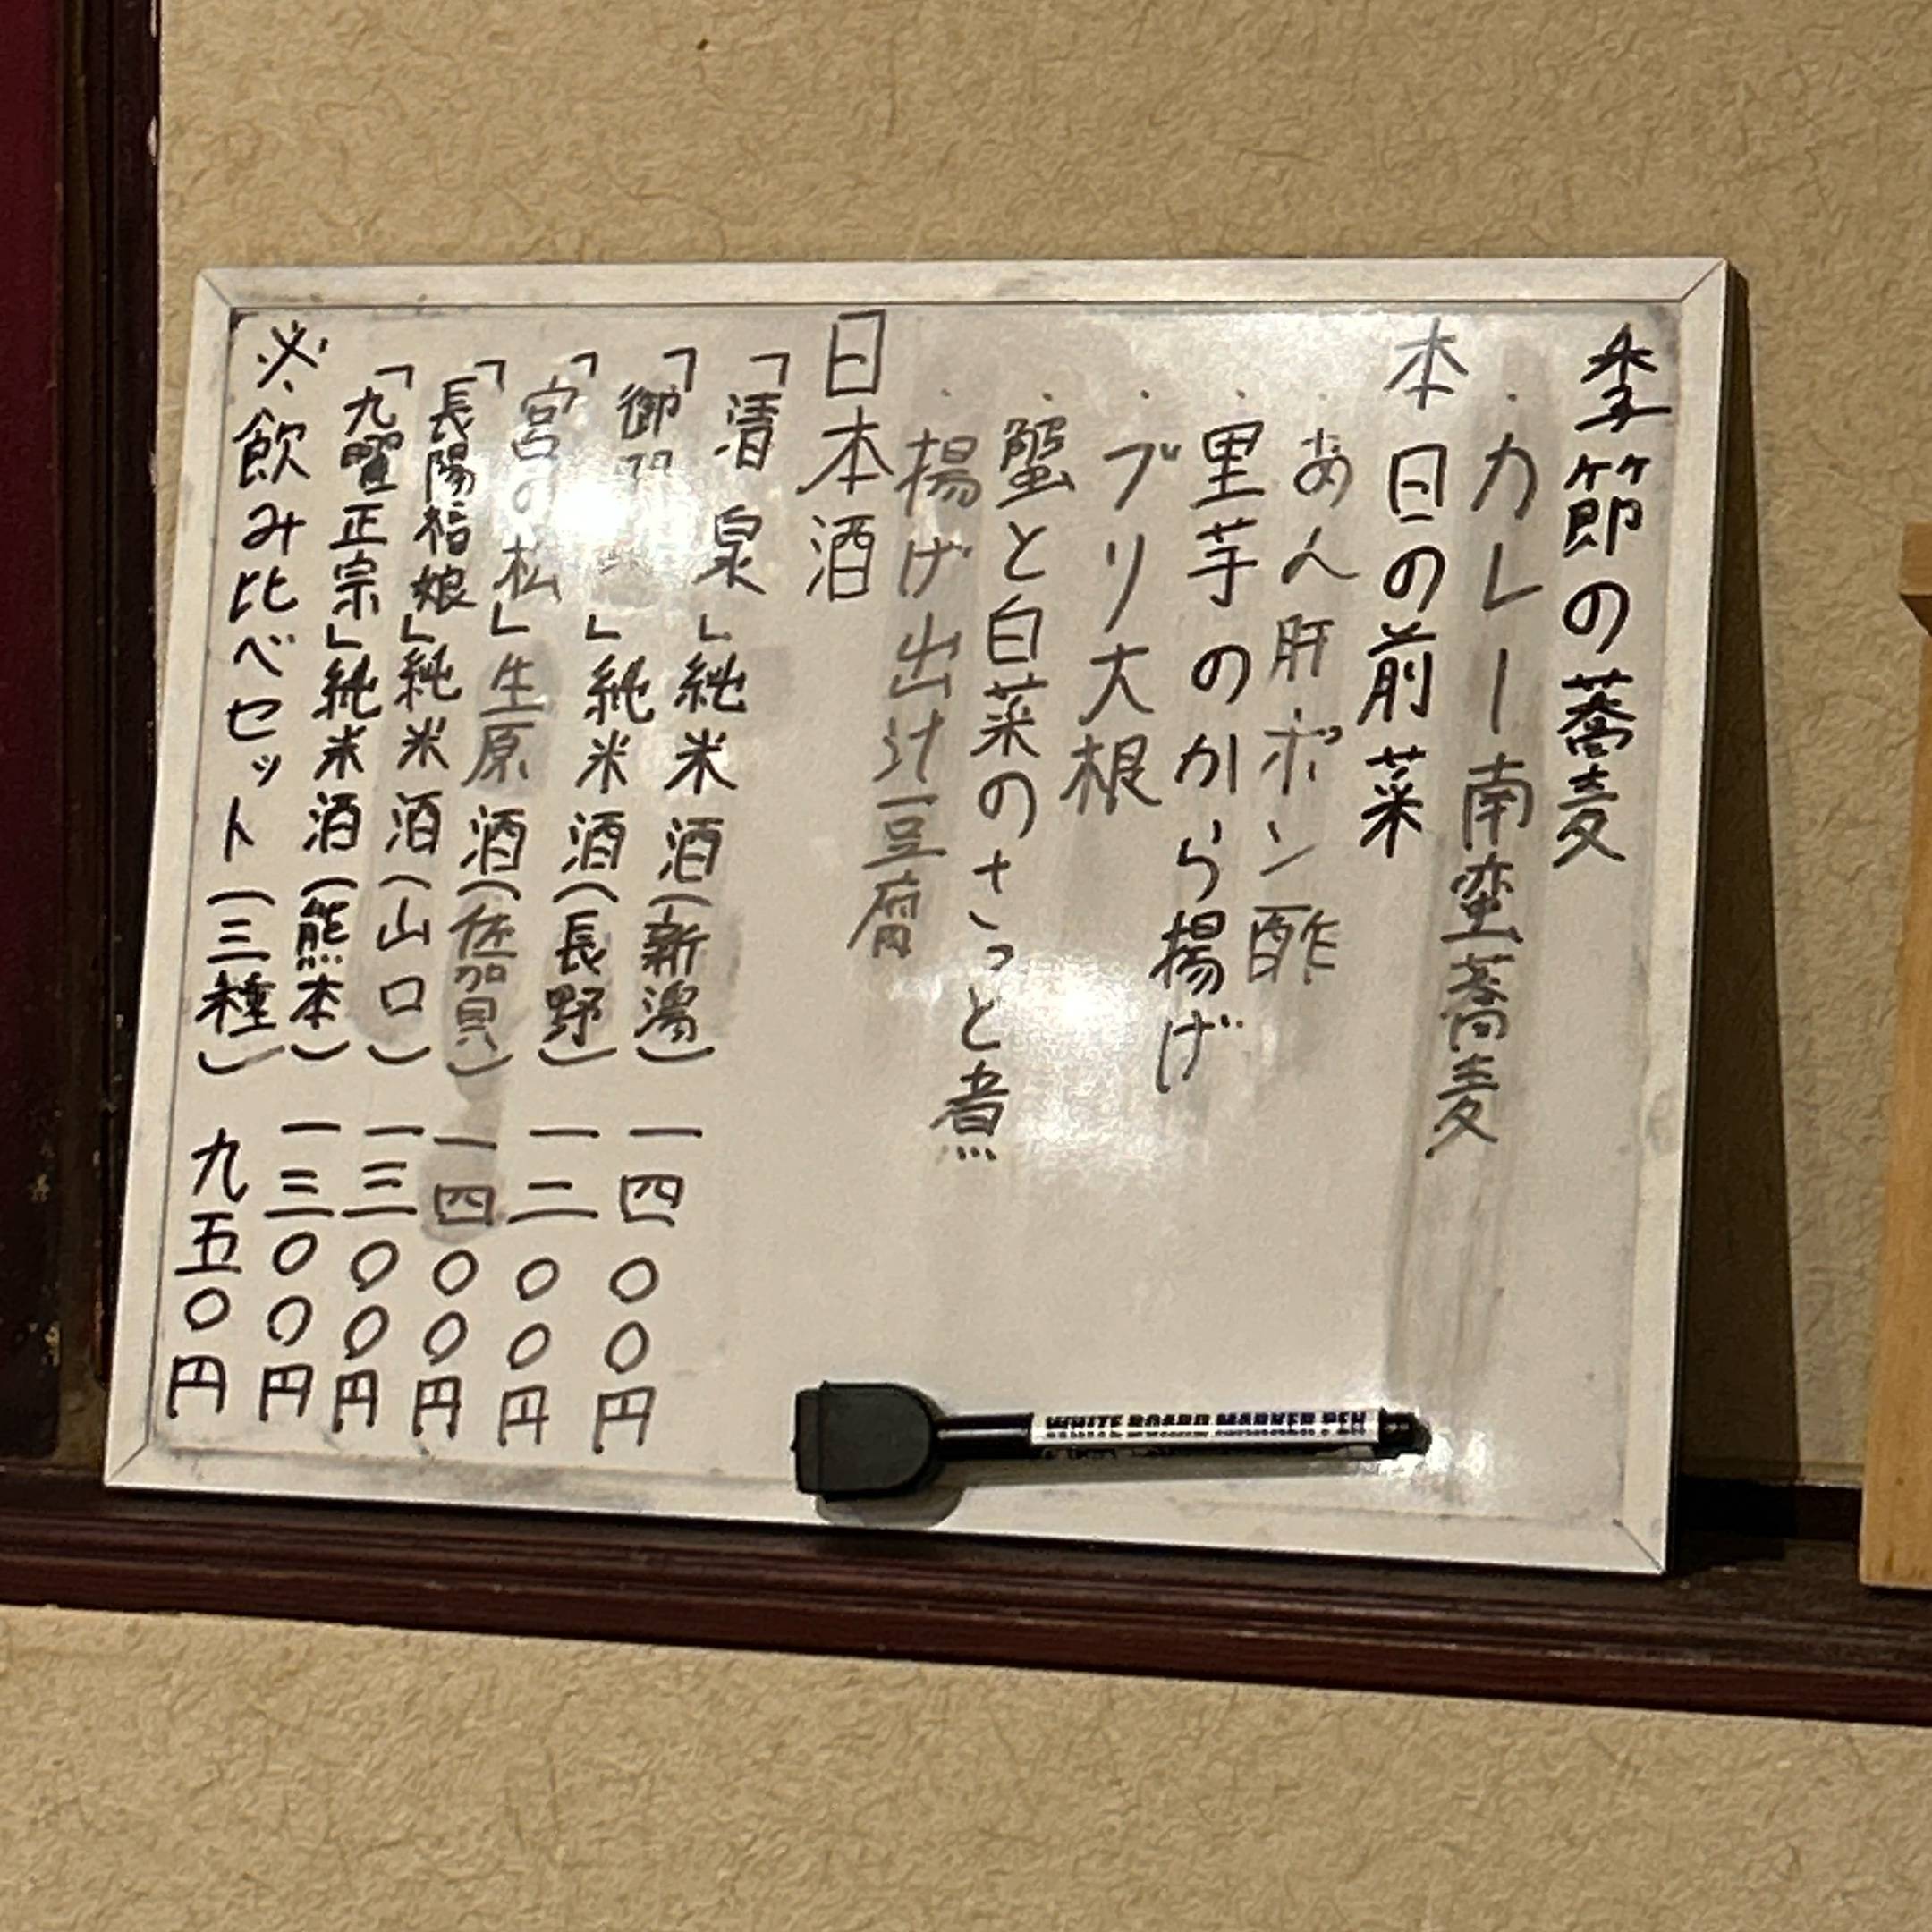 季節の蕎麦
・カレー南蛮蕎麦
本日の前菜
・あん肝ポン酢
・里芋のから揚げ
・ブリ大根
・蟹と白菜のさっと煮
・揚げ出汁豆腐
日本酒
「清泉」純米酒(新潟)一四〇〇円
「御 」純米酒(長野)一二〇〇円
「宮の松」生原酒(佐賀)一四〇〇円
「長陽福娘」純米酒(山口)一三〇〇円
「九曜正宗」純米酒(熊本)一三〇〇円
※飲み比べセット(三種)九五〇円
WHITE BOARD MARKER PEN